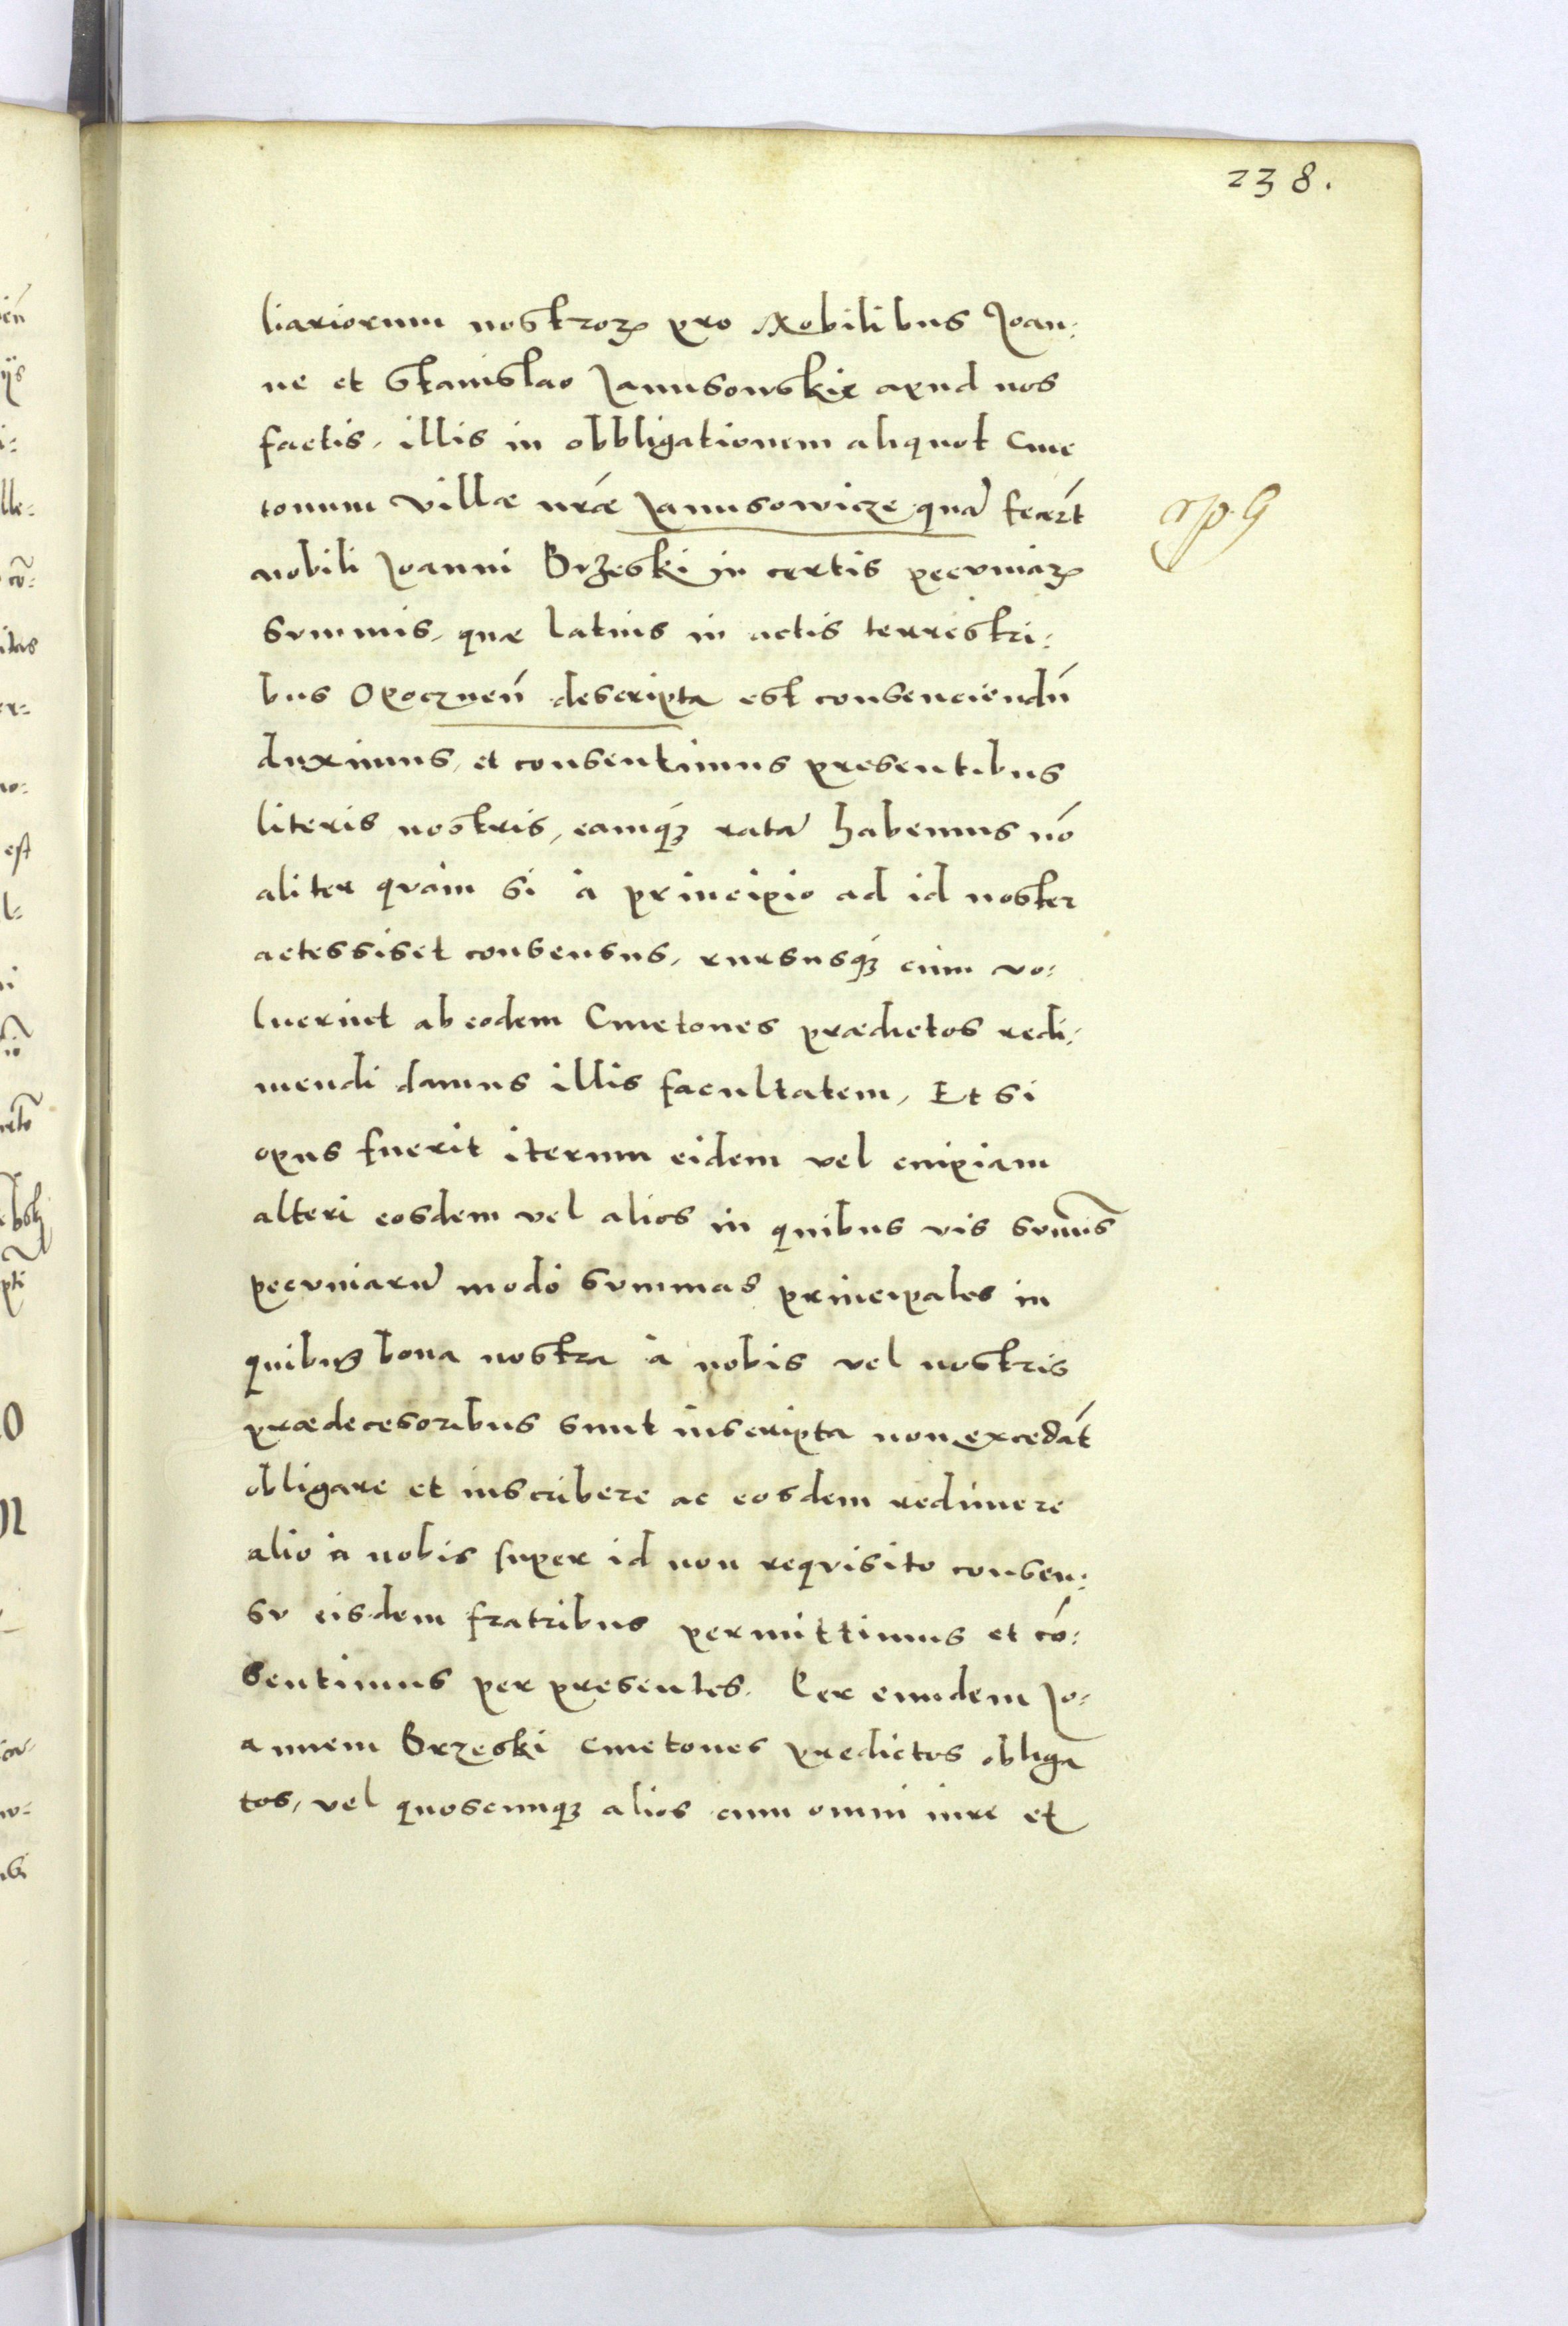 238.
liariorum nostroꝝ pro Nobilibus Joan:
ne et Stanislao Janusowskie apud nos
factis, illis in obbligationem aliquot Cme
tonum villæ nr̃æ Janusowicze quā fecer̃t
nobili Joanni Brzeski in certis pecuniaꝝ
summis, quæ latius in actis terrestri:
bus Opocznen̄ descripta est consencien̄du̇
duximus, et consentimus presentibus
literis nostris, eamqꝫ ratā habemus nō
aliter quàm si à principio ad id noster
actessiset consensus, rursusqꝫ cùm vo:
luerint ab eodem Cmetones prædictos redi:
mendi damus illis facultatem, Et si
opus fuerit iterum eidem vel cuipiam
alteri eosdem vel alios in quibus vis sum̄is
pecuniarū modò summas principales in
quibus bona nostra à nobis vel nostris
prædecesoribus sunt inscripta non excedāt
obligare et inscribere ac eosdem redimere
alio à nobis super id non requisito consen:
su eisdem fratribus permittimus et cō:
sentimus per presentes. Per eundem Jo:
annem Brzeski cmetones predictos obliga
tos, vel quoscunqꝫ alios cum omni iure et